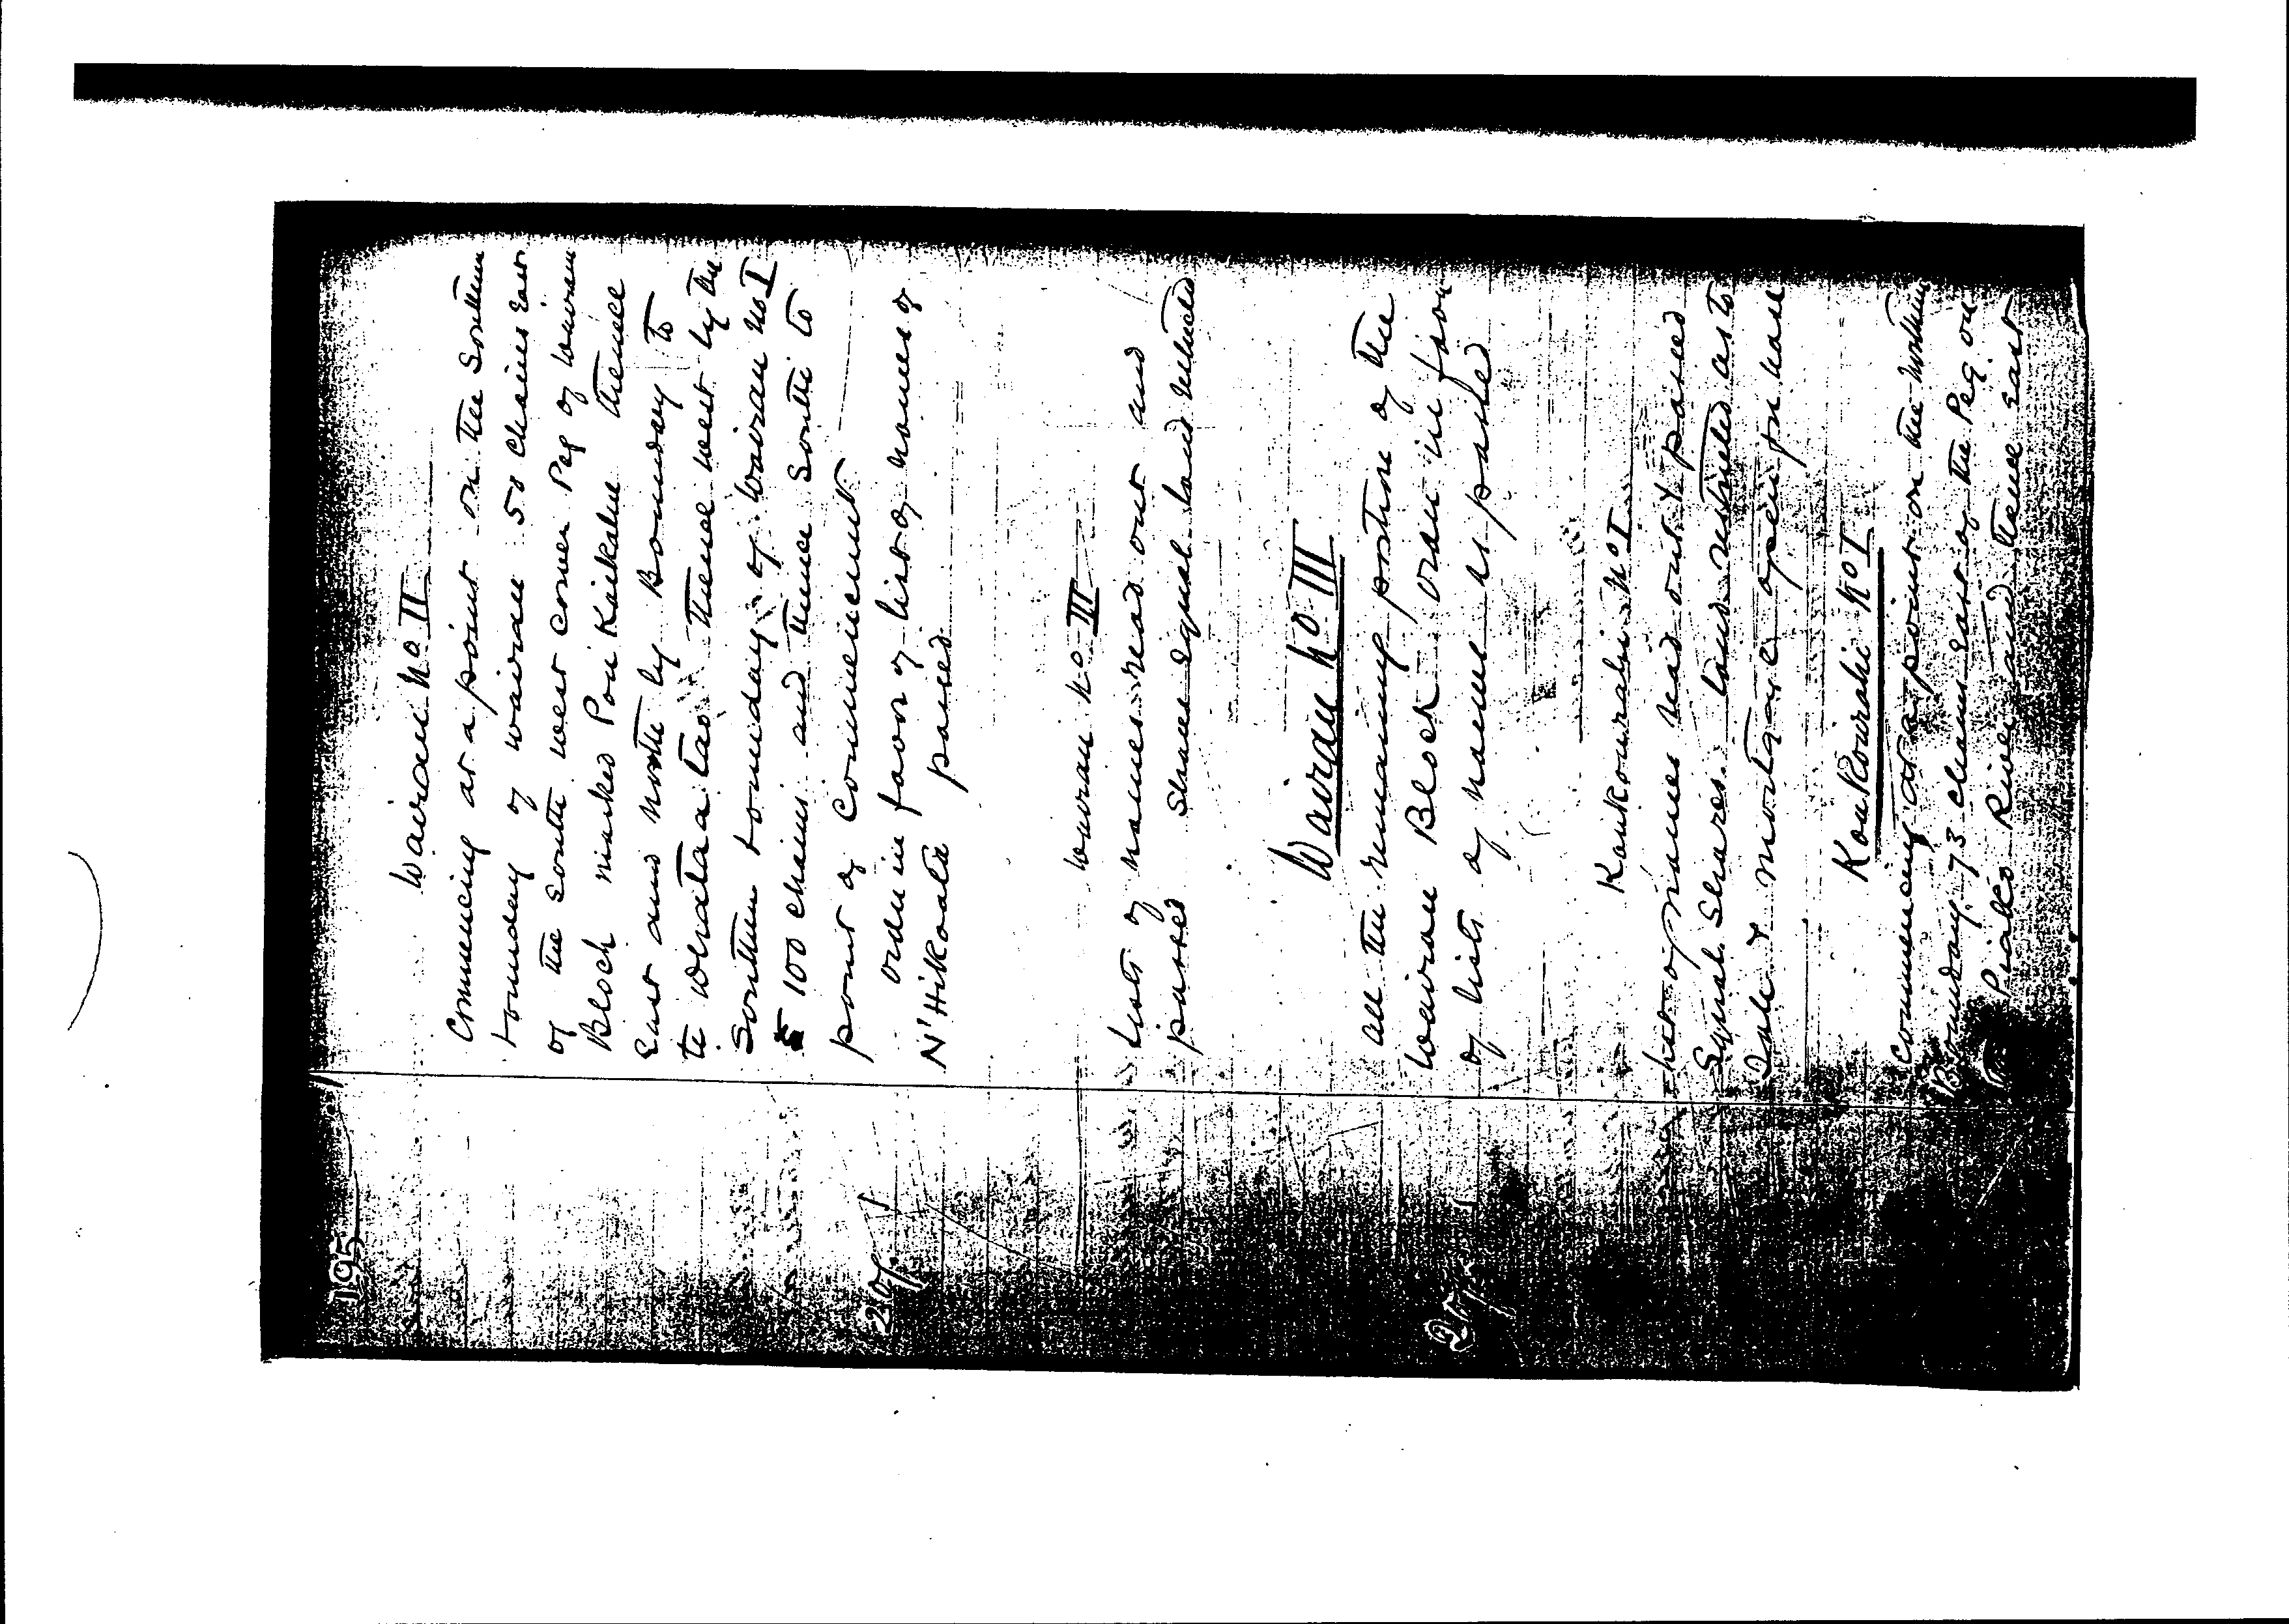 195
Wairau No II
Commencing at a point on the Southern
boundary of Wairau 50 chains East
of the South West corner Peg of Wairau
Block marked Pou Kaikahu thence
East and North by Boundary to
te Whata a tao thence West by the
Southern boundary of Wairau No I
100 chains and thence South to
point of Commencement
20/-
Order in favor of list of names of
N'Hikoata passed
Wairau No III
Lists of names read out and
passed Shares equal land restricted
Wairau No III
All the remaining portion of the
Wairau Block Order in favor
of lists of names as passed
Kaukourahi No I
List of names read out & passed
Equal Shares. Land restricted as to
Sale & mortgage open for lease
Kaukourahi No I
Commencing at a point on the Northern
Boundary 73 chains East of the Peg on
Piako River and thence East